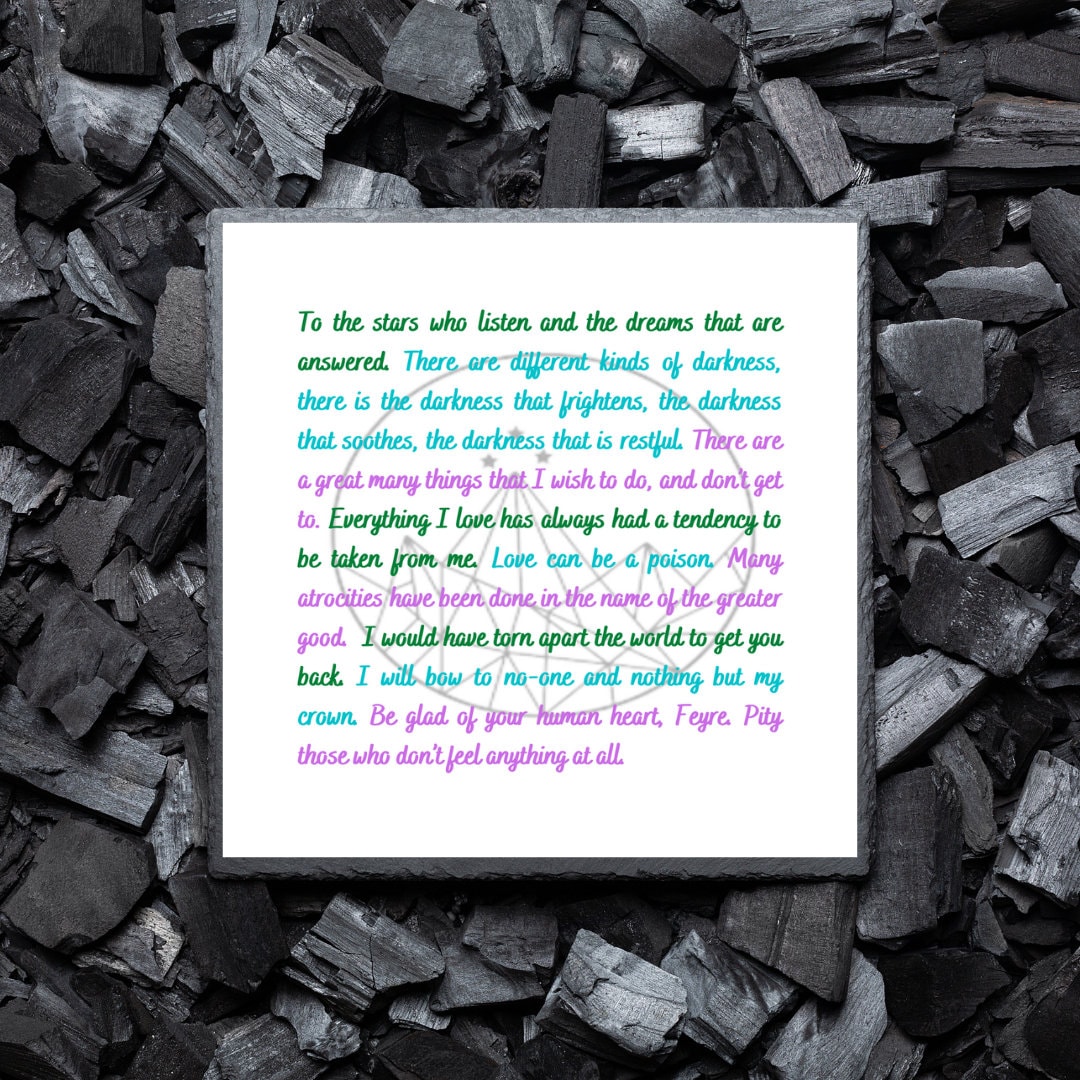 To the stars who listen and the dreams that are
answered. There are different kinds of darkness,
there is the darkness that frightens, the darkness
that soothes, the darkness that is restful. There are
a great many things that I wish to do, and don't get
to. Everything I love has always had a tendency to
be taken from me. Love can be a poison. Many
atrocities have been done in the name of the greater
good. I would have torn apart the world to get you
back. I will bow to no-one and nothing but my
crown. Be glad of your human heart, Feyre. Pity
those who don't feel anything at all.